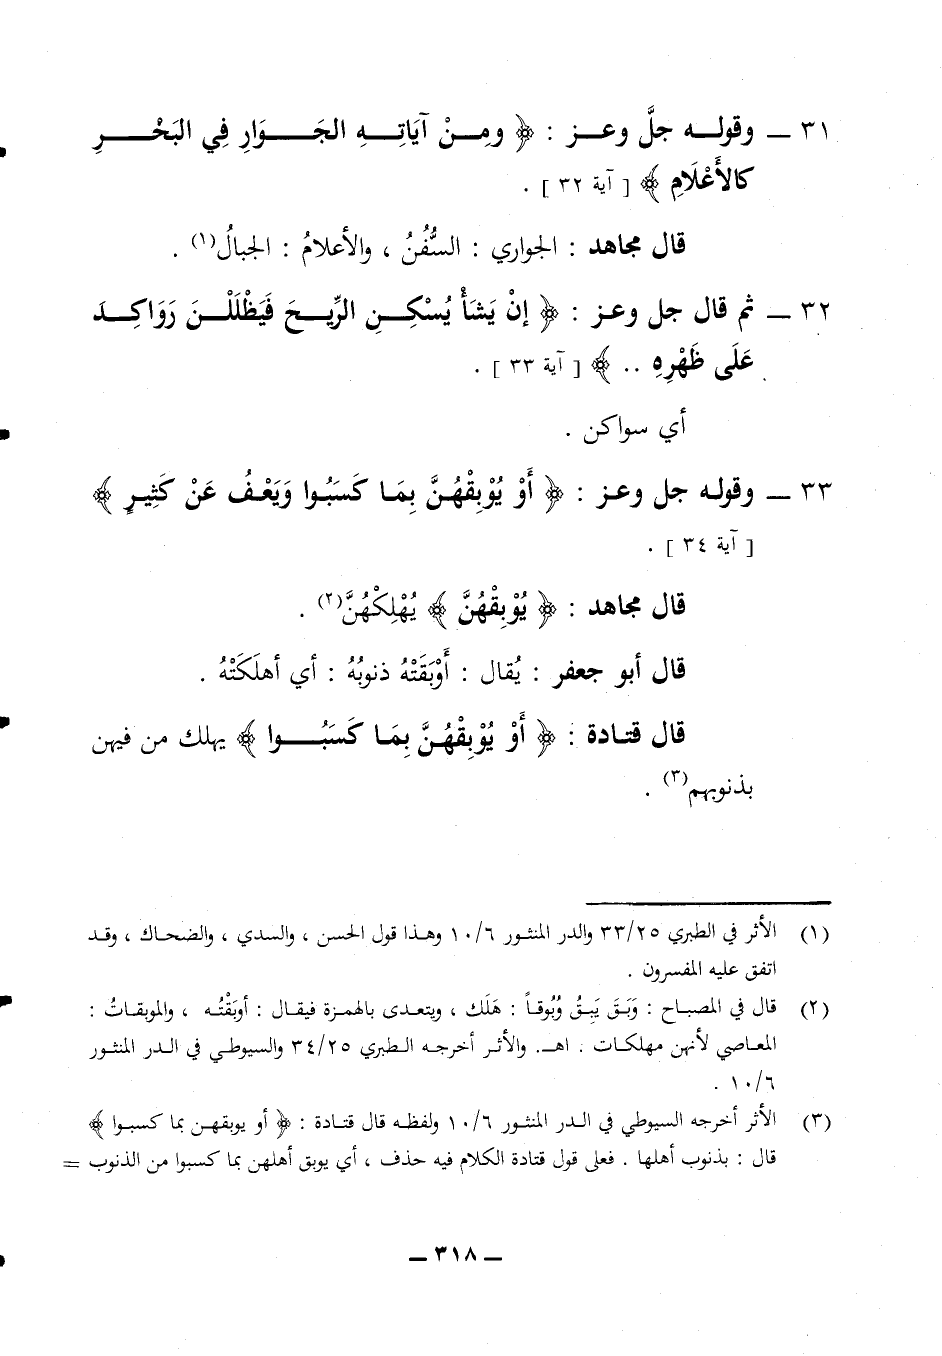 ٣١ ــ وقولــه جلَّ وعــز : ﴿ ومِــنْ آيَاتِــهِ الجَــوَارِ فِي البَحْــرِ
كالأَعْلَامِ ﴾ [ آية ٣٢ ] .
قال مجاهد : الجواري : السُّفُنُ ، والأعلامُ : الجبالُ(١) .
٣٢ ــ ثم قال جل وعز : ﴿ إنْ يَشَأْ يُسْكِــنِ الرِّيــحَ فَيَظْلَلْــنَ رَوَاكِــدَ
عَلَى ظَهْرِهِ .. ﴾ [ آية ٣٣ ] .
أي سواكن .
٣٣ ــ وقوله جل وعز : ﴿ أَوْ يُوْبِقْهُنَّ بِمَا كَسَبُوا وَيَعْفُ عَنْ كَثِيرٍ ﴾
[ آية ٣٤ ] .
قال مجاهد : ﴿ يُوْبِقْهُنَّ ﴾ يُهْلِكْهُنَّ(٢) .
قال أبو جعفر : يُقال : أَوْبَقَتْهُ ذنوبُهُ : أي أهلَكَتْهُ .
قال قتادة : ﴿ أَوْ يُوْبِقْهُنَّ بِمَا كَسَبُــوا ﴾ يهلك من فيهن
بذنوبهم(٣) .
(١) الأثر في الطبري ٣٣/٢٥ والدر المنثور ١٠/٦ وهذا قول الحسن ، والسدي ، والضحاك ، وقد
اتفق عليه المفسرون .
(٢) قال في المصباح : وَبَقَ يَبِقُ وُبُوقاً : هَلَك ، ويتعدى بالهمزة فيقال : أوبَقْتُه ، والموبقاتُ :
المعاصي لأنهن مهلكات . اهـ. والأثر أخرجه الطبري ٣٤/٢٥ والسيوطي في الدر المنثور
١٠/٦ .
(٣) الأثر أخرجه السيوطي في الدر المنثور ١٠/٦ ولفظه قال قتادة : ﴿ أو يوبقهن بما كسبوا ﴾
قال : بذنوب أهلها . فعلى قول قتادة الكلام فيه حذف ، أي يوبق أهلهن بما كسبوا من الذنوب =
ــ ٣١٨ ــ